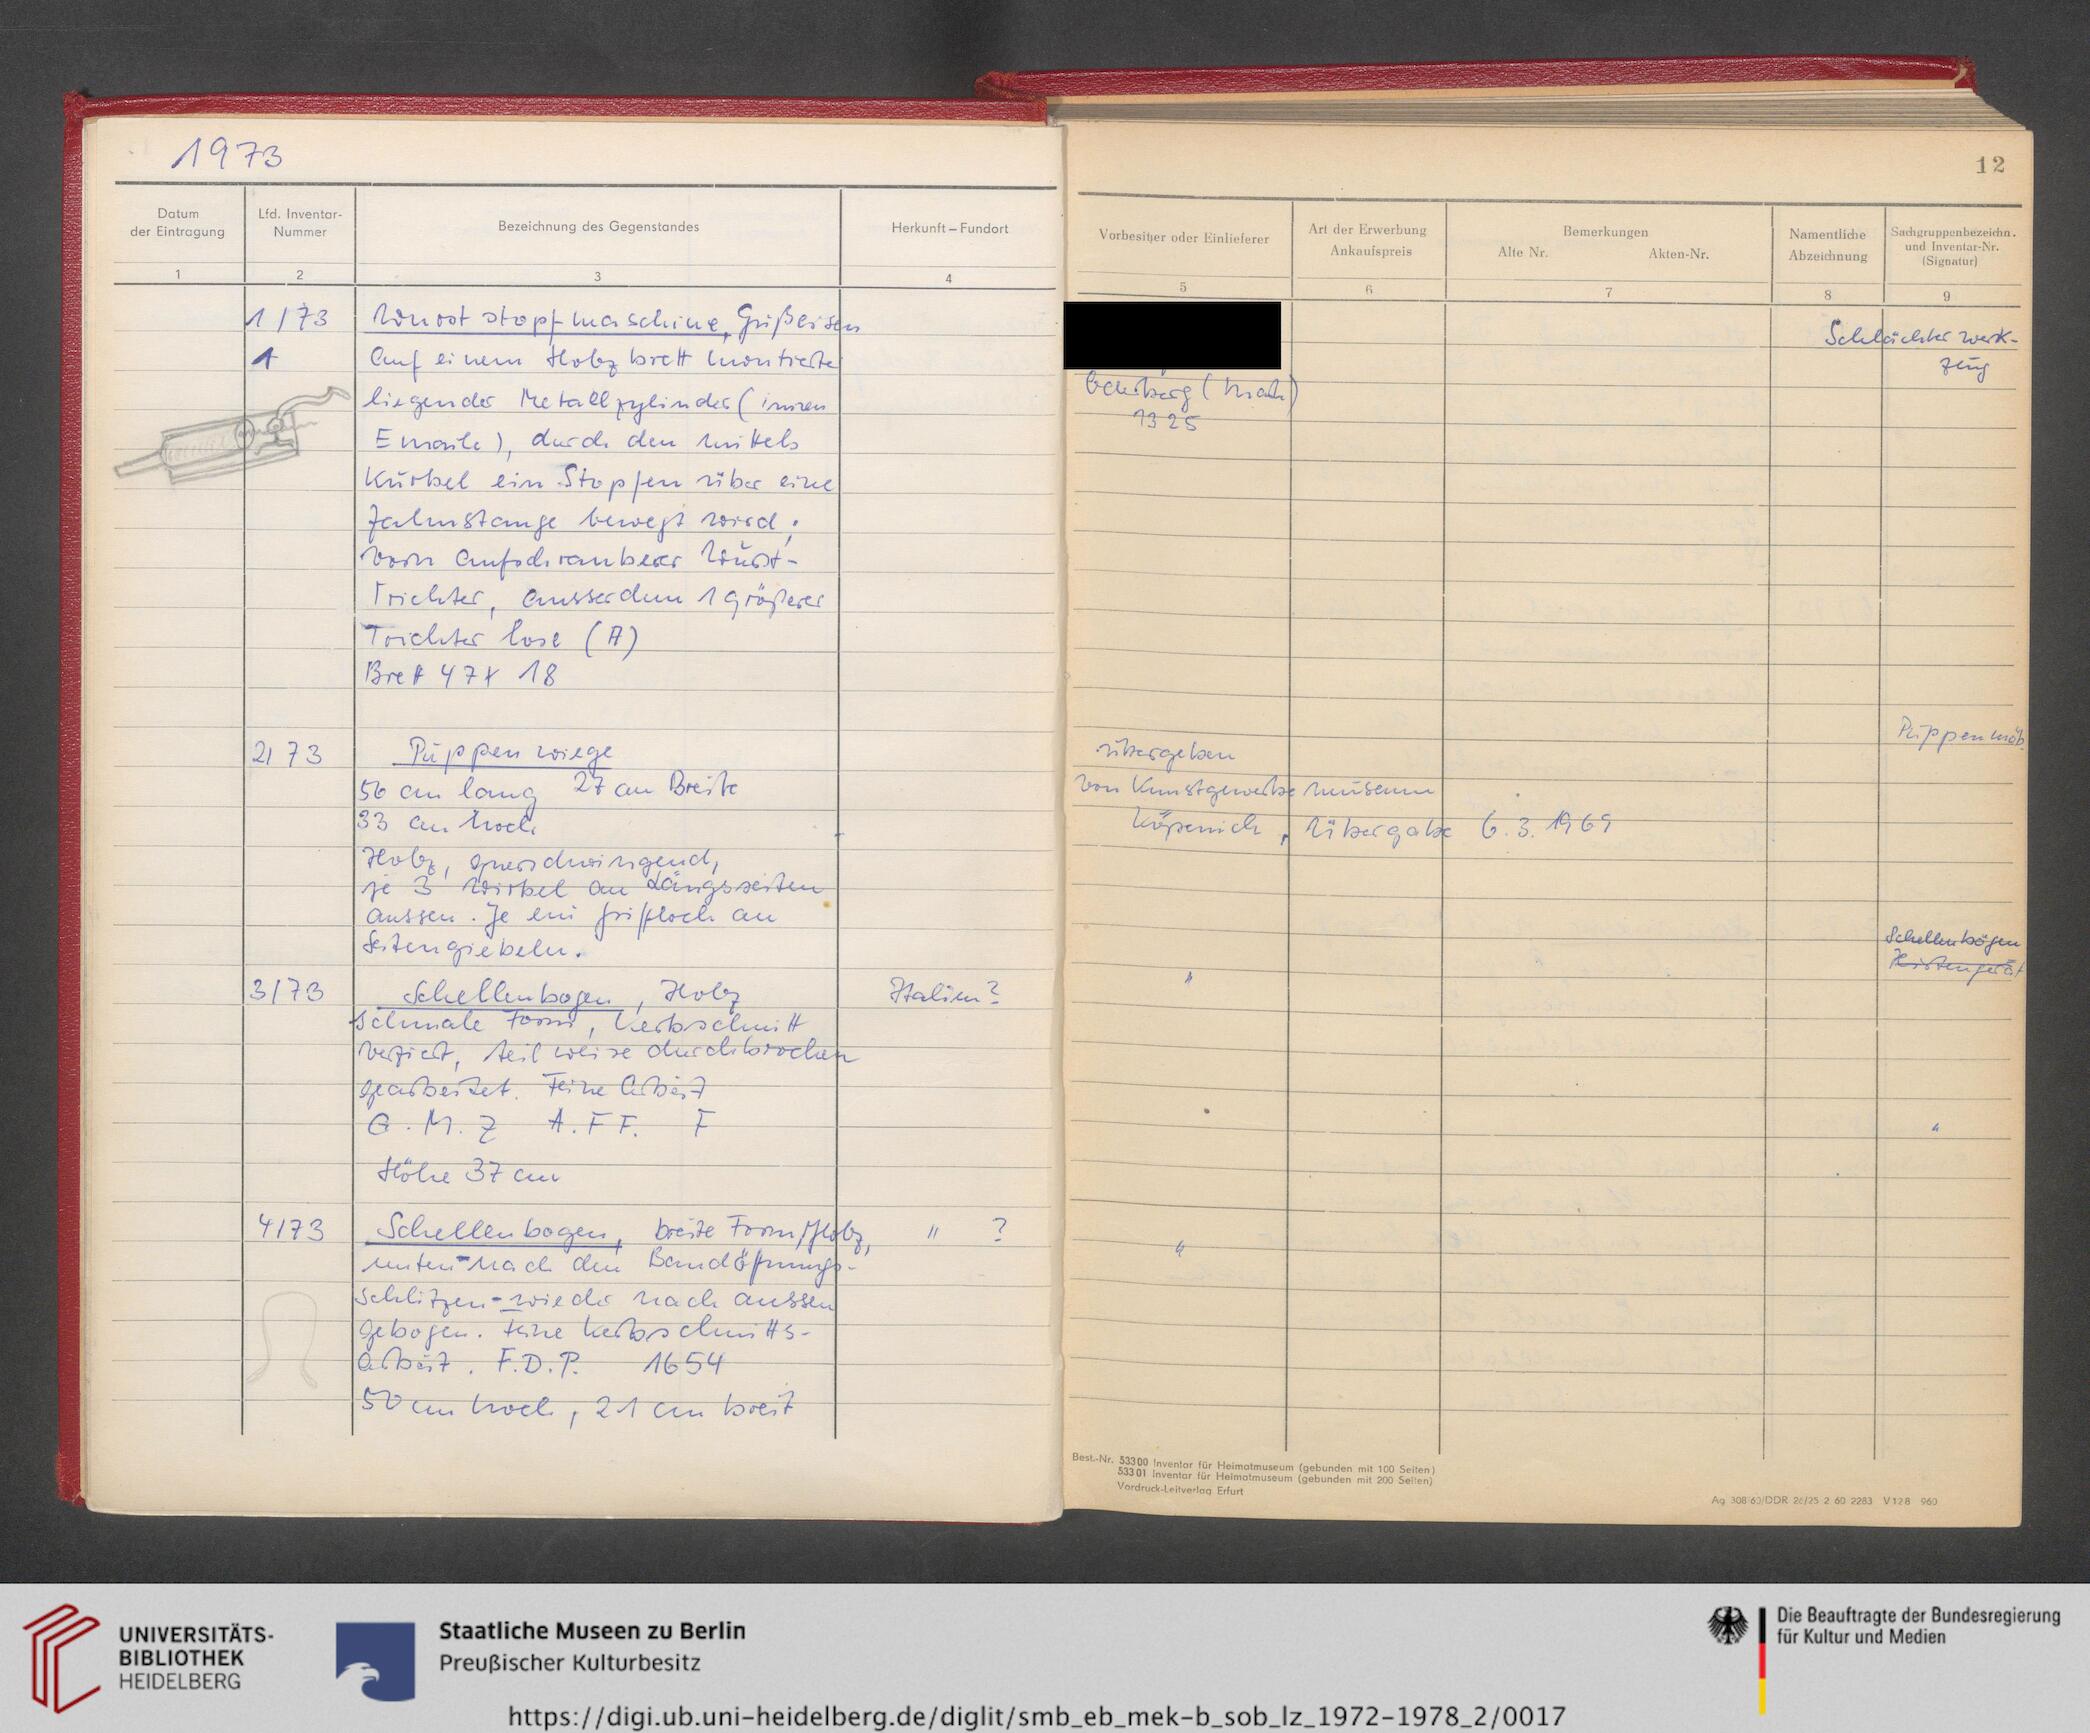 1973
12
Datum
der Eintragung
Lfd. Inventar-
Nummer
Bezeichnung des Gegenstandes
Herkunft – Fundort
Vorbesitzer oder Einlieferer
Art der Erwerbung
Ankaufspreis
Bemerkungen
Alte Nr. Akten-Nr.
Namentliche
Abzeichnung
Sachgruppenbezeichn.
und Inventar-Nr.
(Signatur)
1 2 3 4 5 6 7 8 9
1/73 Wurststopfmaschine, Gußeisen
1 auf einem Holzbrett montierte
liegender Metallzylinder (innen
Emaile), durch den mittels
Kurbel ein Stopfen über eine
Zahnstange bewegt wird;
vorn aufschraubbarer Wurst-
Trichter, ausserdem 1 größerer
Trichter lose (A)
Brett 47 x 18
(Mark)
1325
Schlächterwerk-
zeug
2/73 Puppenwiege
56 cm lang 27 cm Breite
33 cm hoch
Holz, querschwingend,
je 3 Wirbel an Längsseiten
aussen. Je ein Griffloch an
Seitengiebeln.
übergeben
von Kunstgewerbemuseum
Köpenick, Übergabe 6.3.1969
Puppenmöb.
3/73 Schellenbogen, Holz Italien?
schmale Form, Kerbschnitt
verziert, teilweise durchbrochen
gearbeitet. Feine Arbeit
G. M. Z A. F F. F
Höhe 37 cm
"
Schellenbögen
Hirtengerät
4/73 Schellenbogen, breite Form, Holz, " ?
unten - nach den Bandöffnungs-
schlitzen - wieder nach aussen
gebogen. Feine Kerbschnitts-
arbeit. F.D.P. 1654
50 cm hoch, 21 cm breit
"
"
Best.-Nr. 53300 Inventar für Heimatmuseum (gebunden mit 100 Seiten)
53301 Inventar für Heimatmuseum (gebunden mit 200 Seiten)
Vordruck-Leitverlag Erfurt
Ag 308/60/DDR 26/25 2 60 2283 V 12 8 960
UNIVERSITÄTS-
BIBLIOTHEK
HEIDELBERG
Staatliche Museen zu Berlin
Preußischer Kulturbesitz
Die Beauftragte der Bundesregierung
für Kultur und Medien
https://digi.ub.uni-heidelberg.de/diglit/smb_eb_mek-b_sob_lz_1972-1978_2/0017